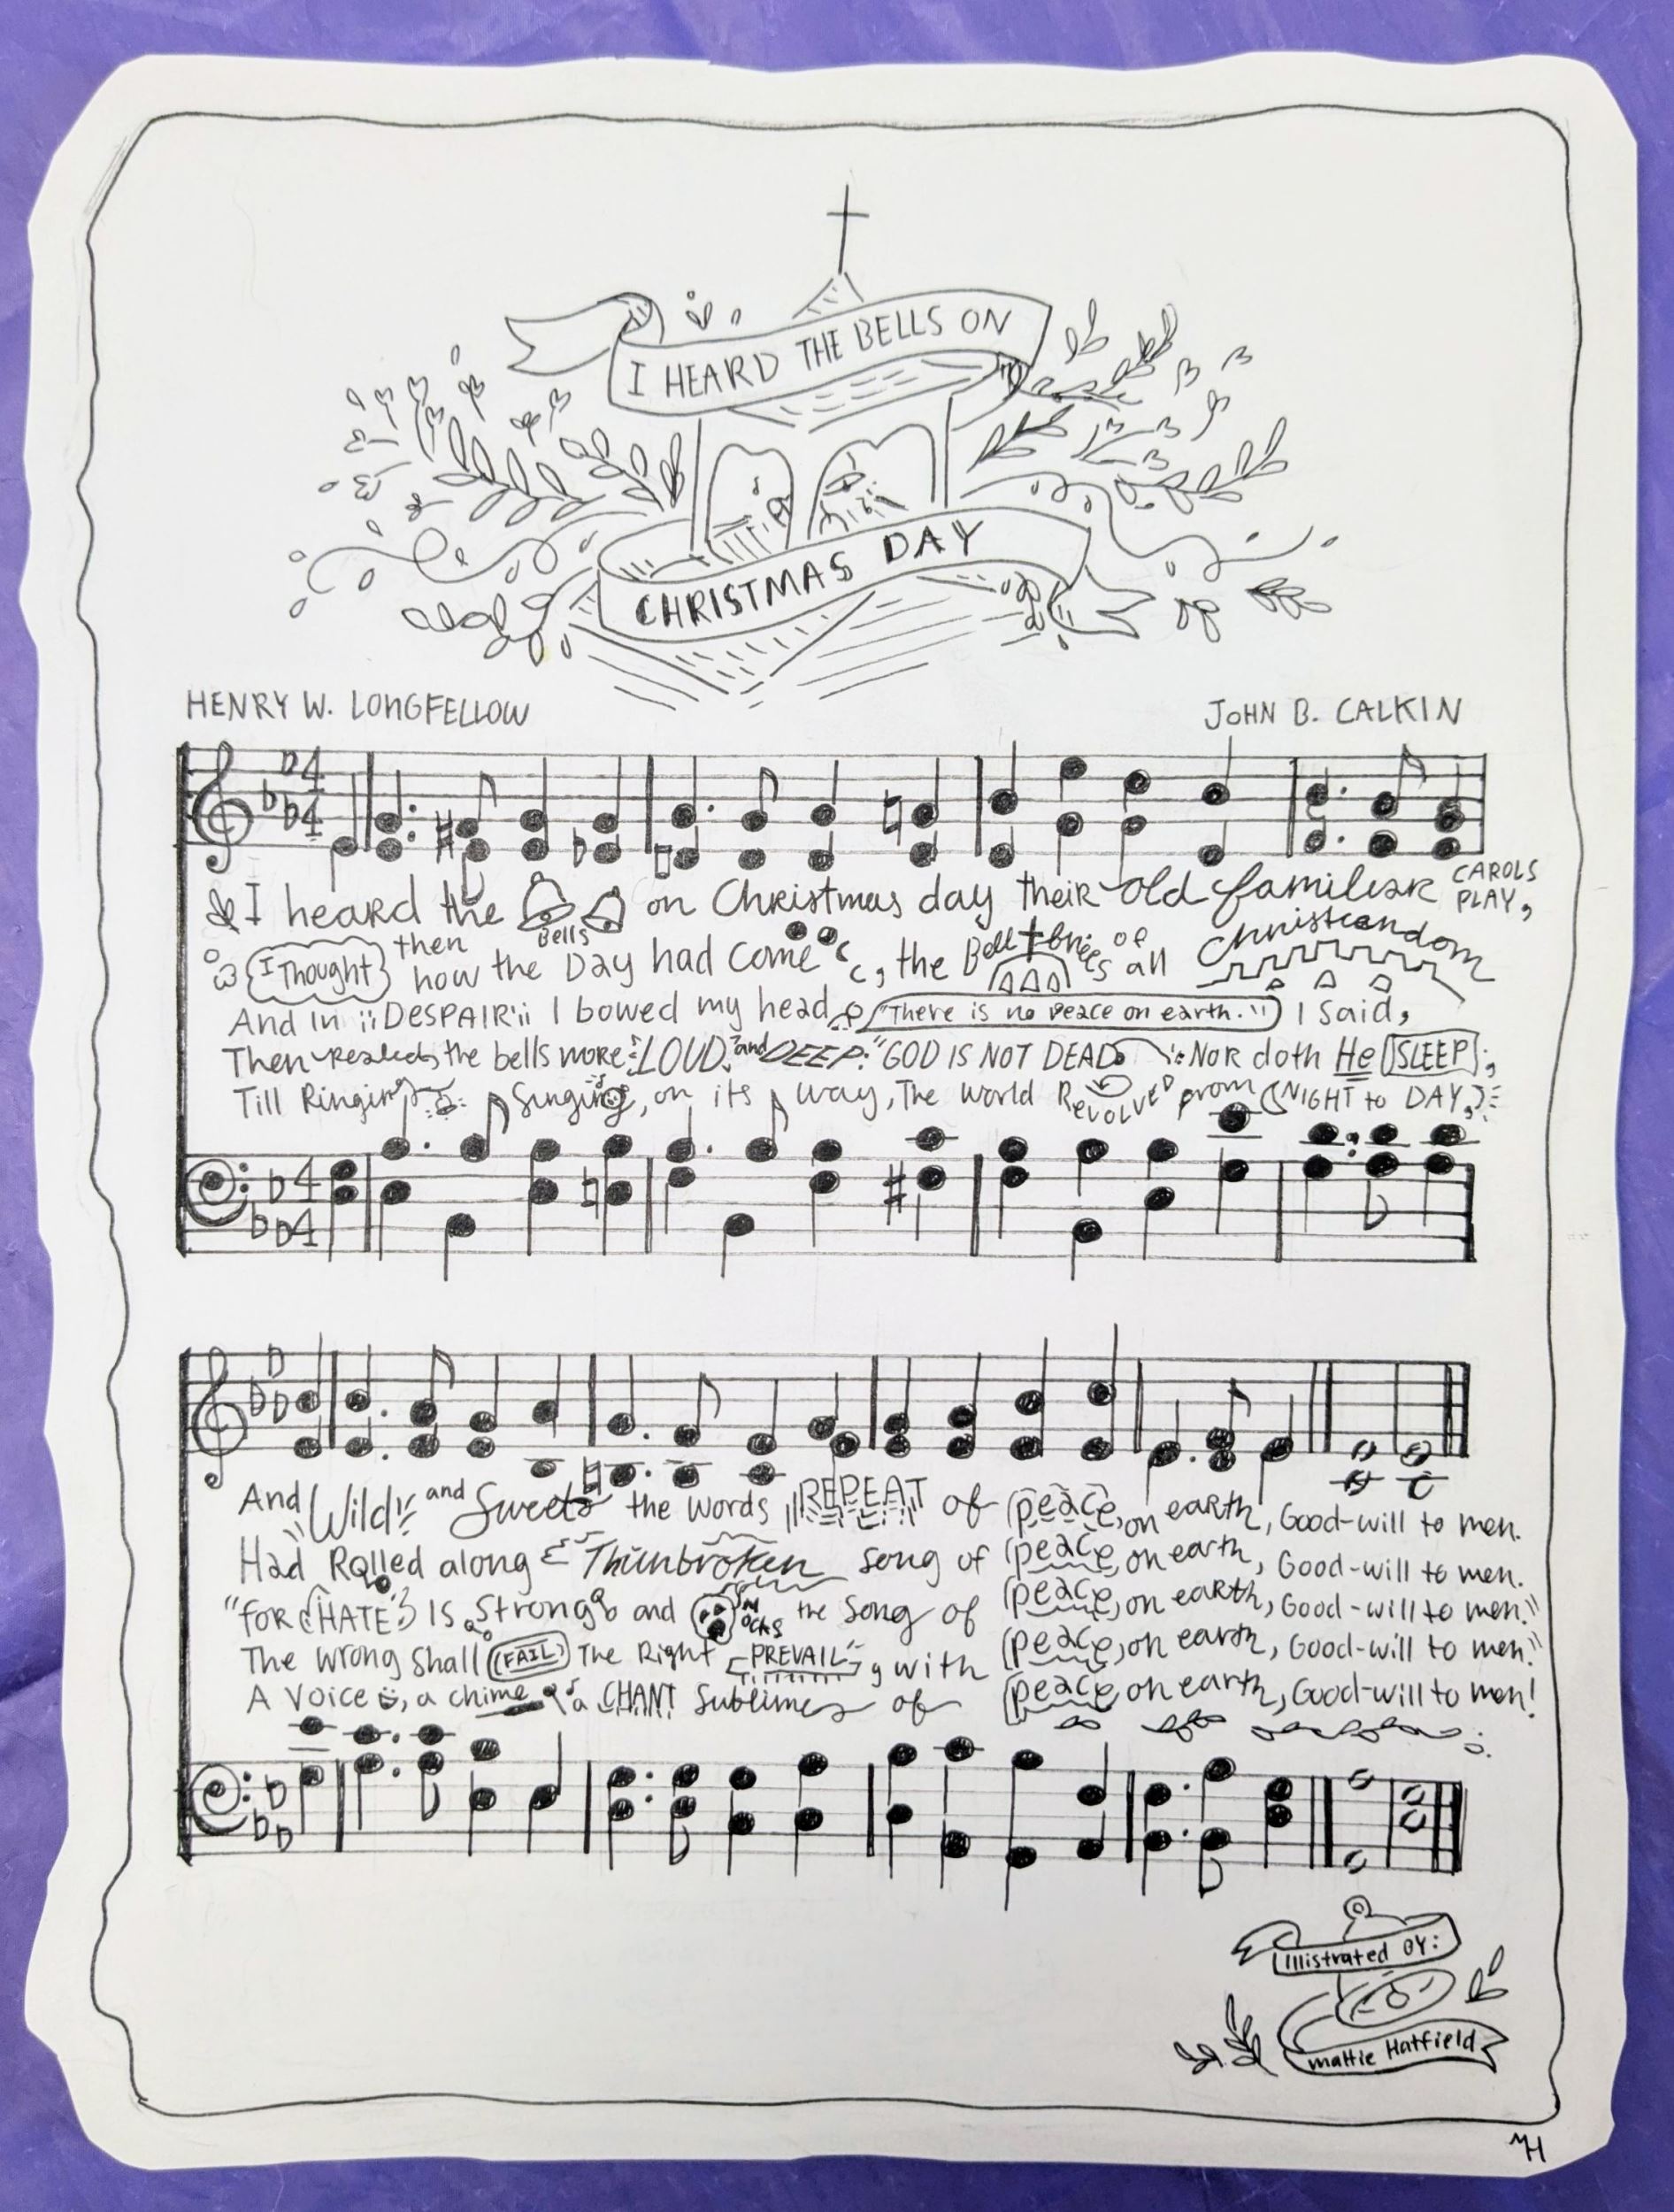 I HEARD THE BELLS ON
CHRISTMAS DAY
HENRY W. LONGFELLOW
JOHN B. CALKIN
I heard the Bells on Christmas day their old familiar CAROLS PLAY,
I Thought then how the Day had come, the Belfries of all Christendom
And in DESPAIR I bowed my head "There is no Peace on earth." I Said,
Then pealed the bells more LOUD and DEEP: "GOD IS NOT DEAD NOR doth He SLEEP;
Till Ringing, Singing, on its way, The World REVOLVED from NIGHT to DAY,
And Wild and Sweet the words REPEAT of peace, on earth, Good-will to men.
Had Rolled along Th'unbroken song of peace on earth, Good-will to men.
"FOR HATE IS Strong and MOCKS the Song of peace, on earth, Good-will to men."
The Wrong Shall FAIL The Right PREVAIL, with peace, on earth, Good-will to men."
A Voice, a chime a CHANT Sublime of peace, on earth, Good-will to men!
Illistrated BY:
Mattie Hatfield
MH